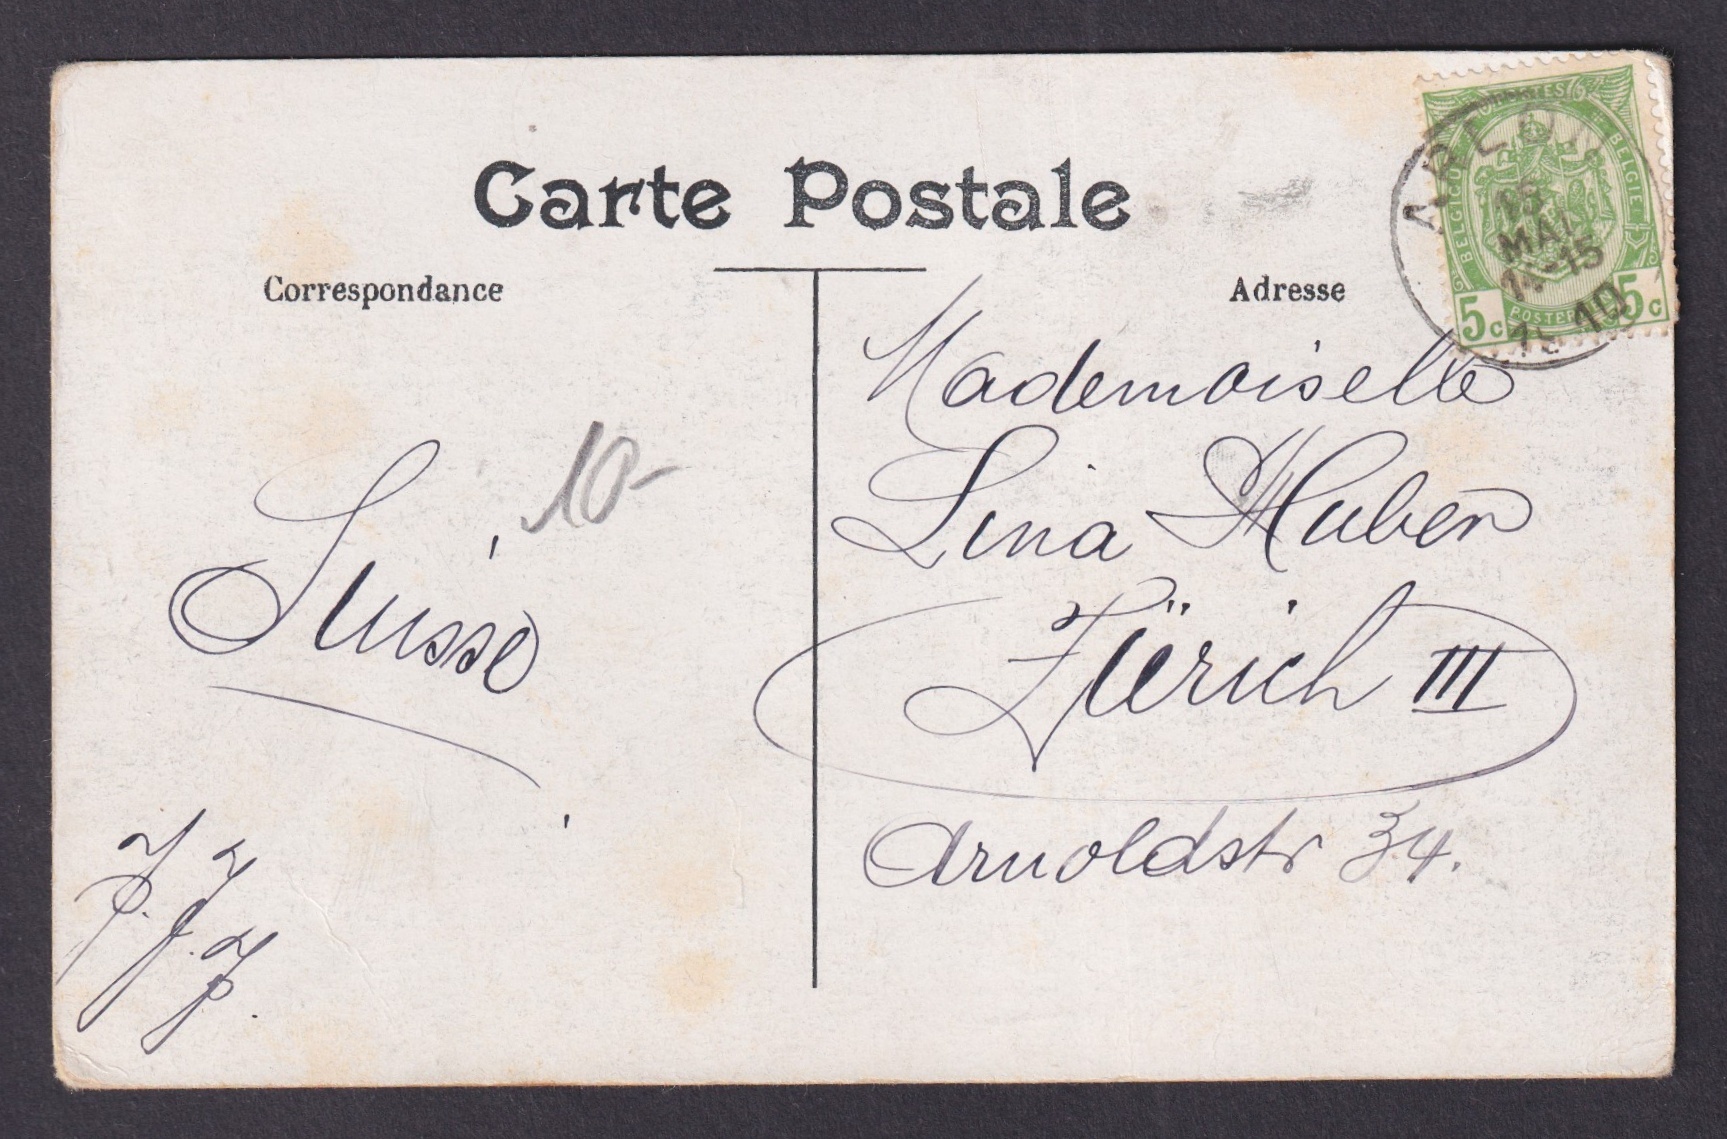 Carte Postale
Correspondance
Adresse
POSTES
BELGIQUE
BELGIE
POSTERIJEN
5c
5c
ARLON
15
MAI
14-15
1910
Mademoiselle
Lina Huber
Zürich III
Arnoldstr 34.
Suisse
10-